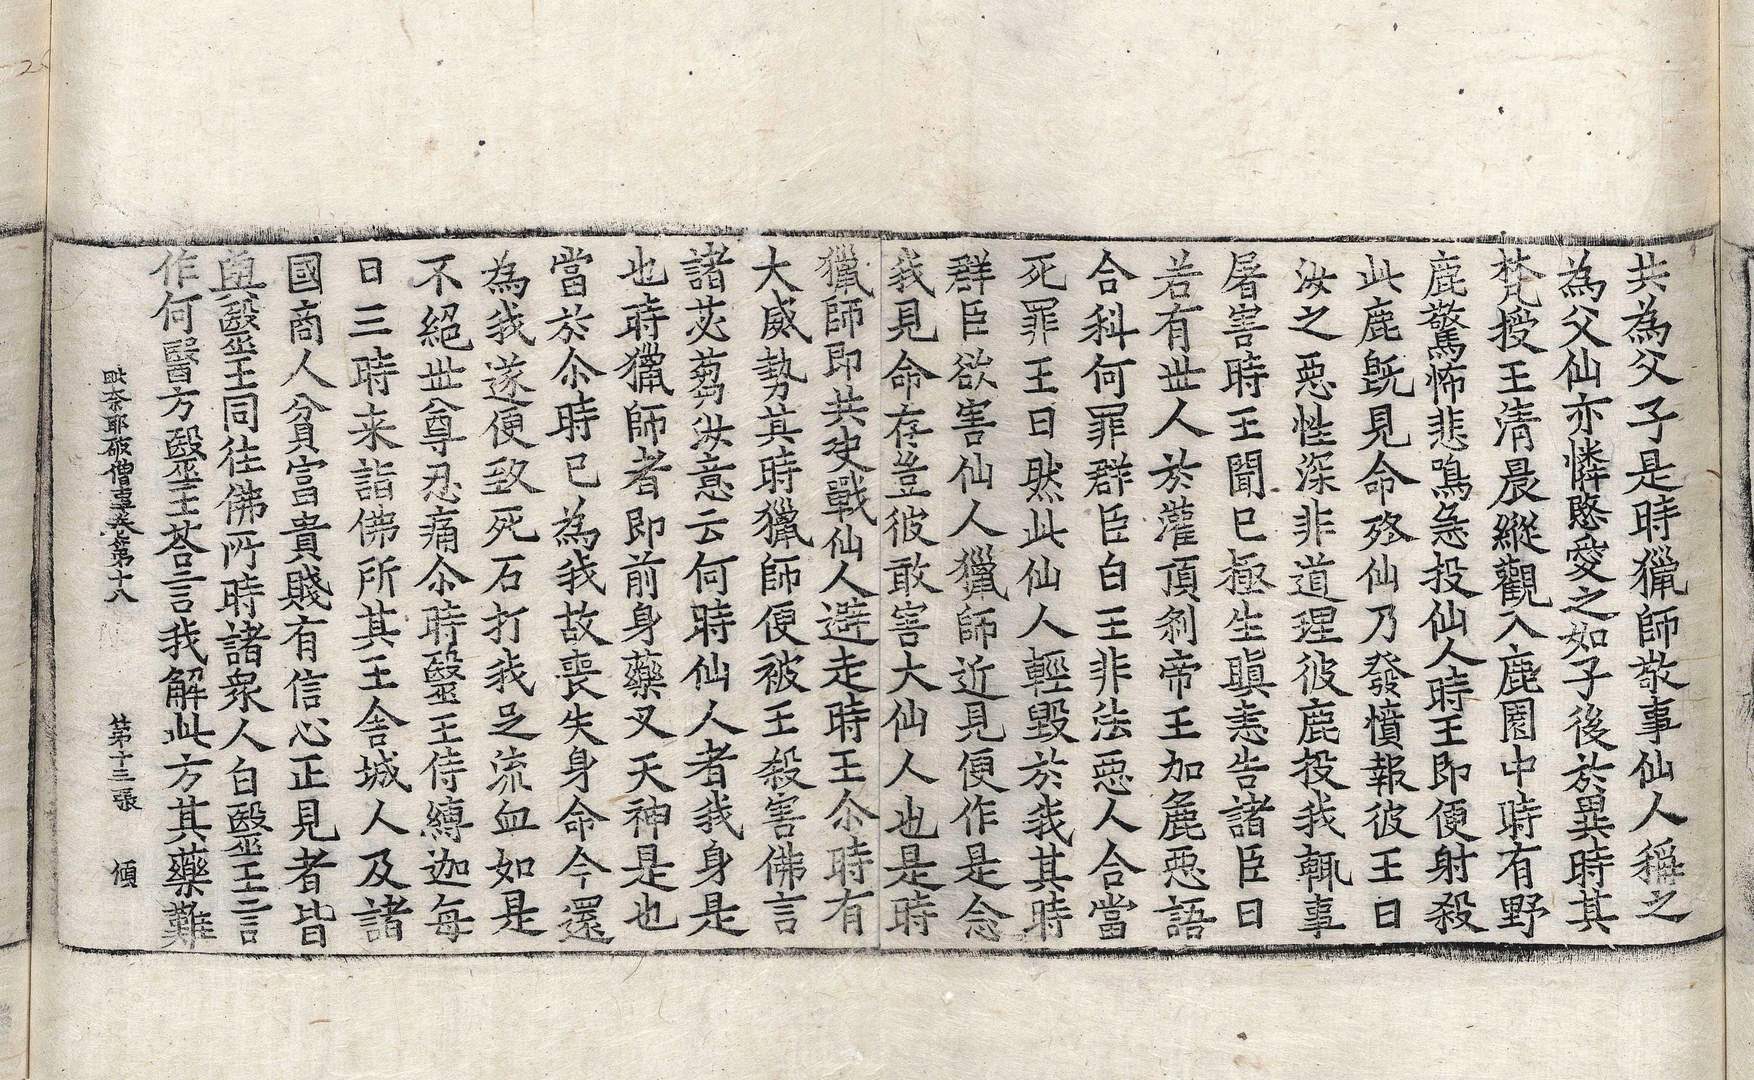 共為父子是時獵師敬事仙人稱之
為父仙亦憐愍愛之如子後於異時其
梵授王清晨縱觀入鹿園中時有野
鹿驚怖悲鳴急投仙人時王即便射殺
此鹿旣見命殁仙乃發憤報彼王曰
汝之惡性深非道理彼鹿投我輒事
屠害時王聞已極生瞋恚告諸臣曰
若有世人於灌頂刹帝王加麁惡語
合科何罪群臣白王非法惡人合當
死罪王曰然此仙人輕毀於我其時
群臣欲害仙人獵師近見便作是念
我見命存豈彼敢害大仙人也是時
獵師即共史戰仙人避走時王尒時有
大威勢其時獵師便被王殺害佛言
諸苾蒭汝意云何時仙人者我身是
也時獵師者即前身藥叉天神是也
當於尒時已為我故喪失身命今還
為我遂便致死石打我足流血如是
不絕世尊忍痛尒時醫王侍縛迦每
日三時来詣佛所其王舍城人及諸
國商人貧富貴賤有信心正見者皆
與醫王同往佛所時諸衆人白醫王言
作何醫方醫王荅言我解此方其藥難
毗奈耶破僧事卷第十八　第十三張　傾